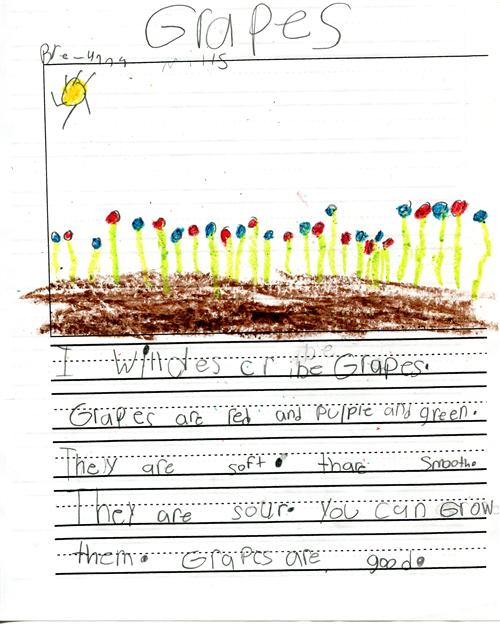 Grapes
Bre-ynna
I Willdes cr ibe Grapes.
Grapes are red and purple and green.
They are soft. thare Smooth.
They are sour. You can Grow
them. Grapes are good.